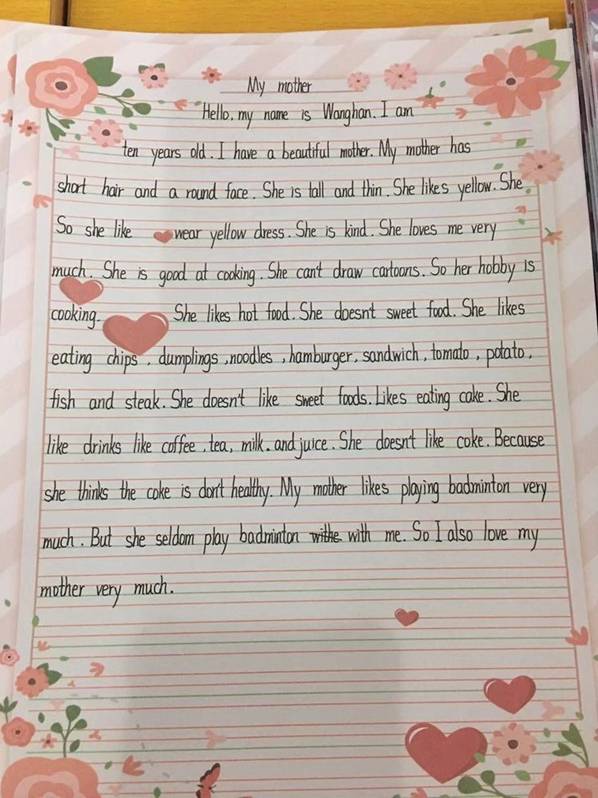 My mother
Hello, my name is Wanghan. I am
ten years old. I have a beautiful mother. My mother has
short hair and a round face. She is tall and thin. She likes yellow. She
So she like wear yellow dress. She is kind. She loves me very
much. She is good at cooking. She can't draw cartoons. So her hobby is
cooking. She likes hot food. She doesnt sweet food. She likes
eating chips, dumplings, noodles, hamburger, sandwich, tomato, potato,
fish and steak. She doesn't like sweet foods. Likes eating cake. She
like drinks like coffee, tea, milk. and juice. She doesn't like coke. Because
she thinks the coke is don't healthy. My mother likes playing badminton very
much. But she seldom play badminton withe with me. So I also love my
mother very much.